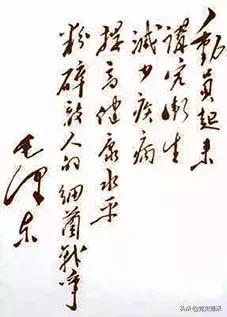 动员起来
讲究卫生
减少疾病
提高健康水平
粉碎敌人的细菌战争
毛泽东
头条@党史博采